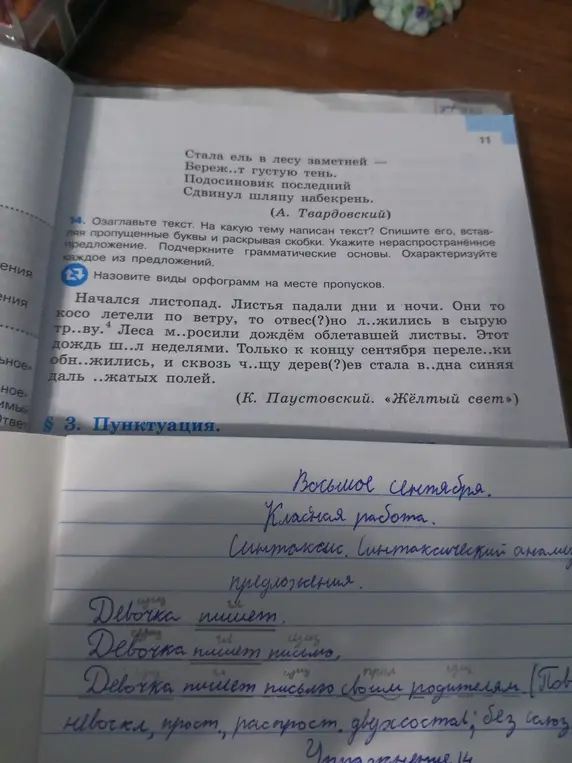 11
Стала ель в лесу заметней —
Береж..т густую тень.
Подосиновик последний
Сдвинул шляпу набекрень.
(А. Твардовский)
14. Озаглавьте текст. На какую тему написан текст? Спишите его, встав-
ляя пропущенные буквы и раскрывая скобки. Укажите нераспространённое
предложение. Подчеркните грамматические основы. Охарактеризуйте
каждое из предложений.
Назовите виды орфограмм на месте пропусков.
Начался листопад. Листья падали дни и ночи. Они то
косо летели по ветру, то отвес(?)но л..жились в сырую
тр..ву.4 Леса м..росили дождём облетавшей листвы. Этот
дождь ш..л неделями. Только к концу сентября переле..ки
обн..жились, и сквозь ч..щу дерев(?)ев стала в..дна синяя
даль ..жатых полей.
(К. Паустовский. «Жёлтый свет»)
§ 3. Пунктуация.
ения
ения
ьное
ное»
имы»
Отве
Восьмое сентября.
Класная работа.
Синтаксис. Синтаксический анализ
предложения.
сущ гл
Девочка пишет.
сущ гл сущ
Девочка пишет письмо.
гл сущ прил сущ
Девочка пишет письмо своим родителям. (Пов
невоскл, прост., распрост. двухсостав; без
Упражнение 14